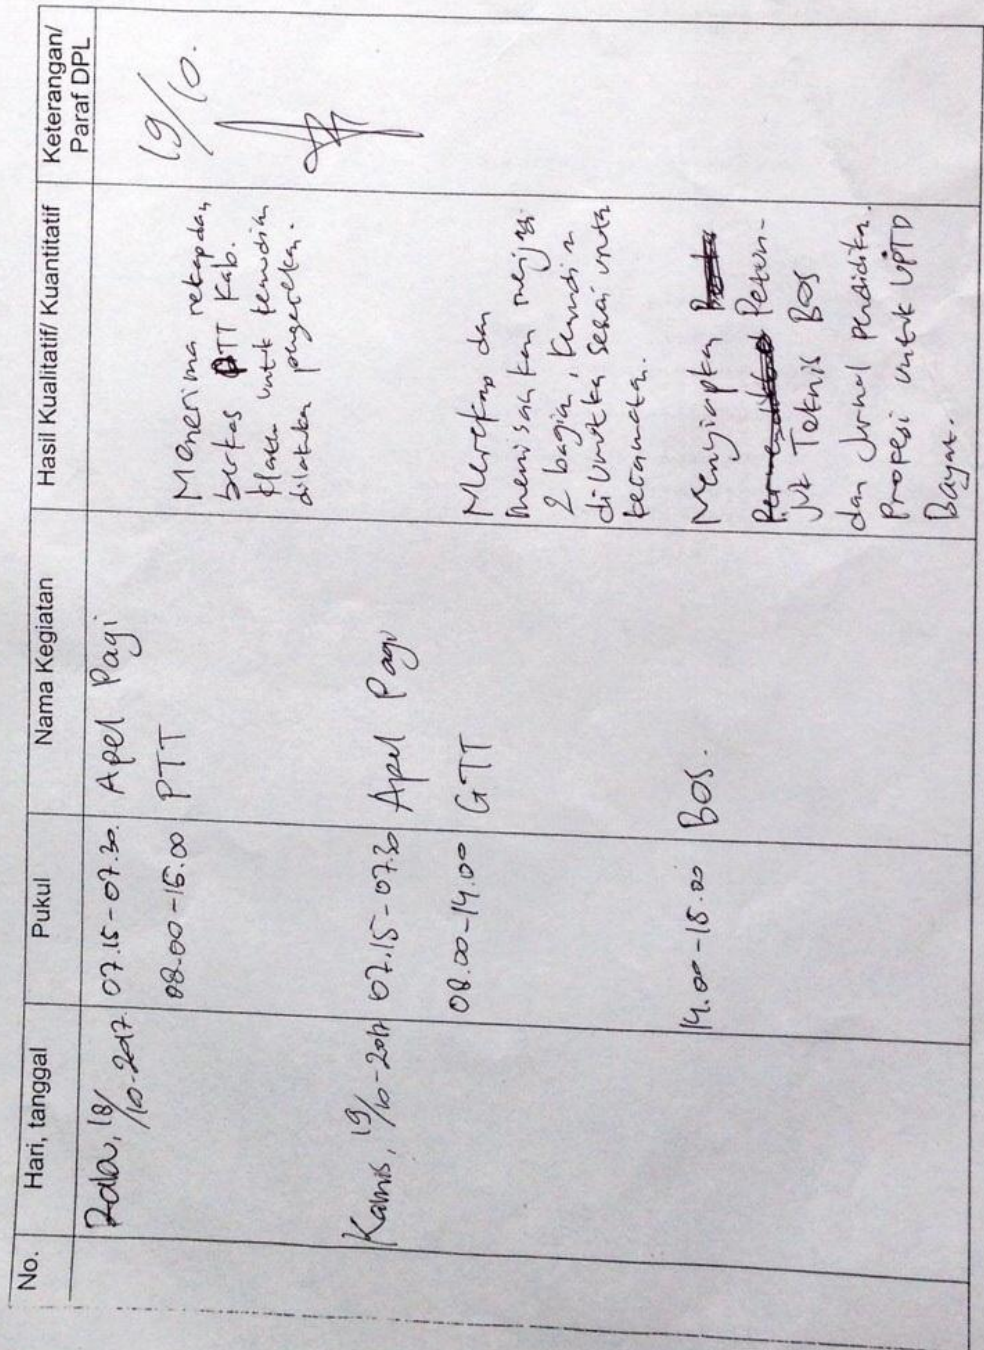 No. Hari, tanggal Pukul Nama Kegiatan Hasil Kualitatif/ Kuantitatif Keterangan/
Paraf DPL
Rabu, 18/10-2017 07.15-07.30 Apel Pagi
19/10.
08.00-15.00 PTT Menerima rekap dan
berkas PTT Kab.
Klaten untuk kemudian
dilakukan pengecekan.
Kamis, 19/10-2017 07.15-07.30 Apel Pagi
08.00-14.00 GTT Merekap dan
memisahkan menjadi
2 bagian, kemudian
diurutkan sesuai urutan
kecamatan.
14.00-15.00 BOS. Menyiapkan
Petun-
juk Teknis BOS
dan Jurnal pendidikan.
Profesi untuk UPTD
Bayat.